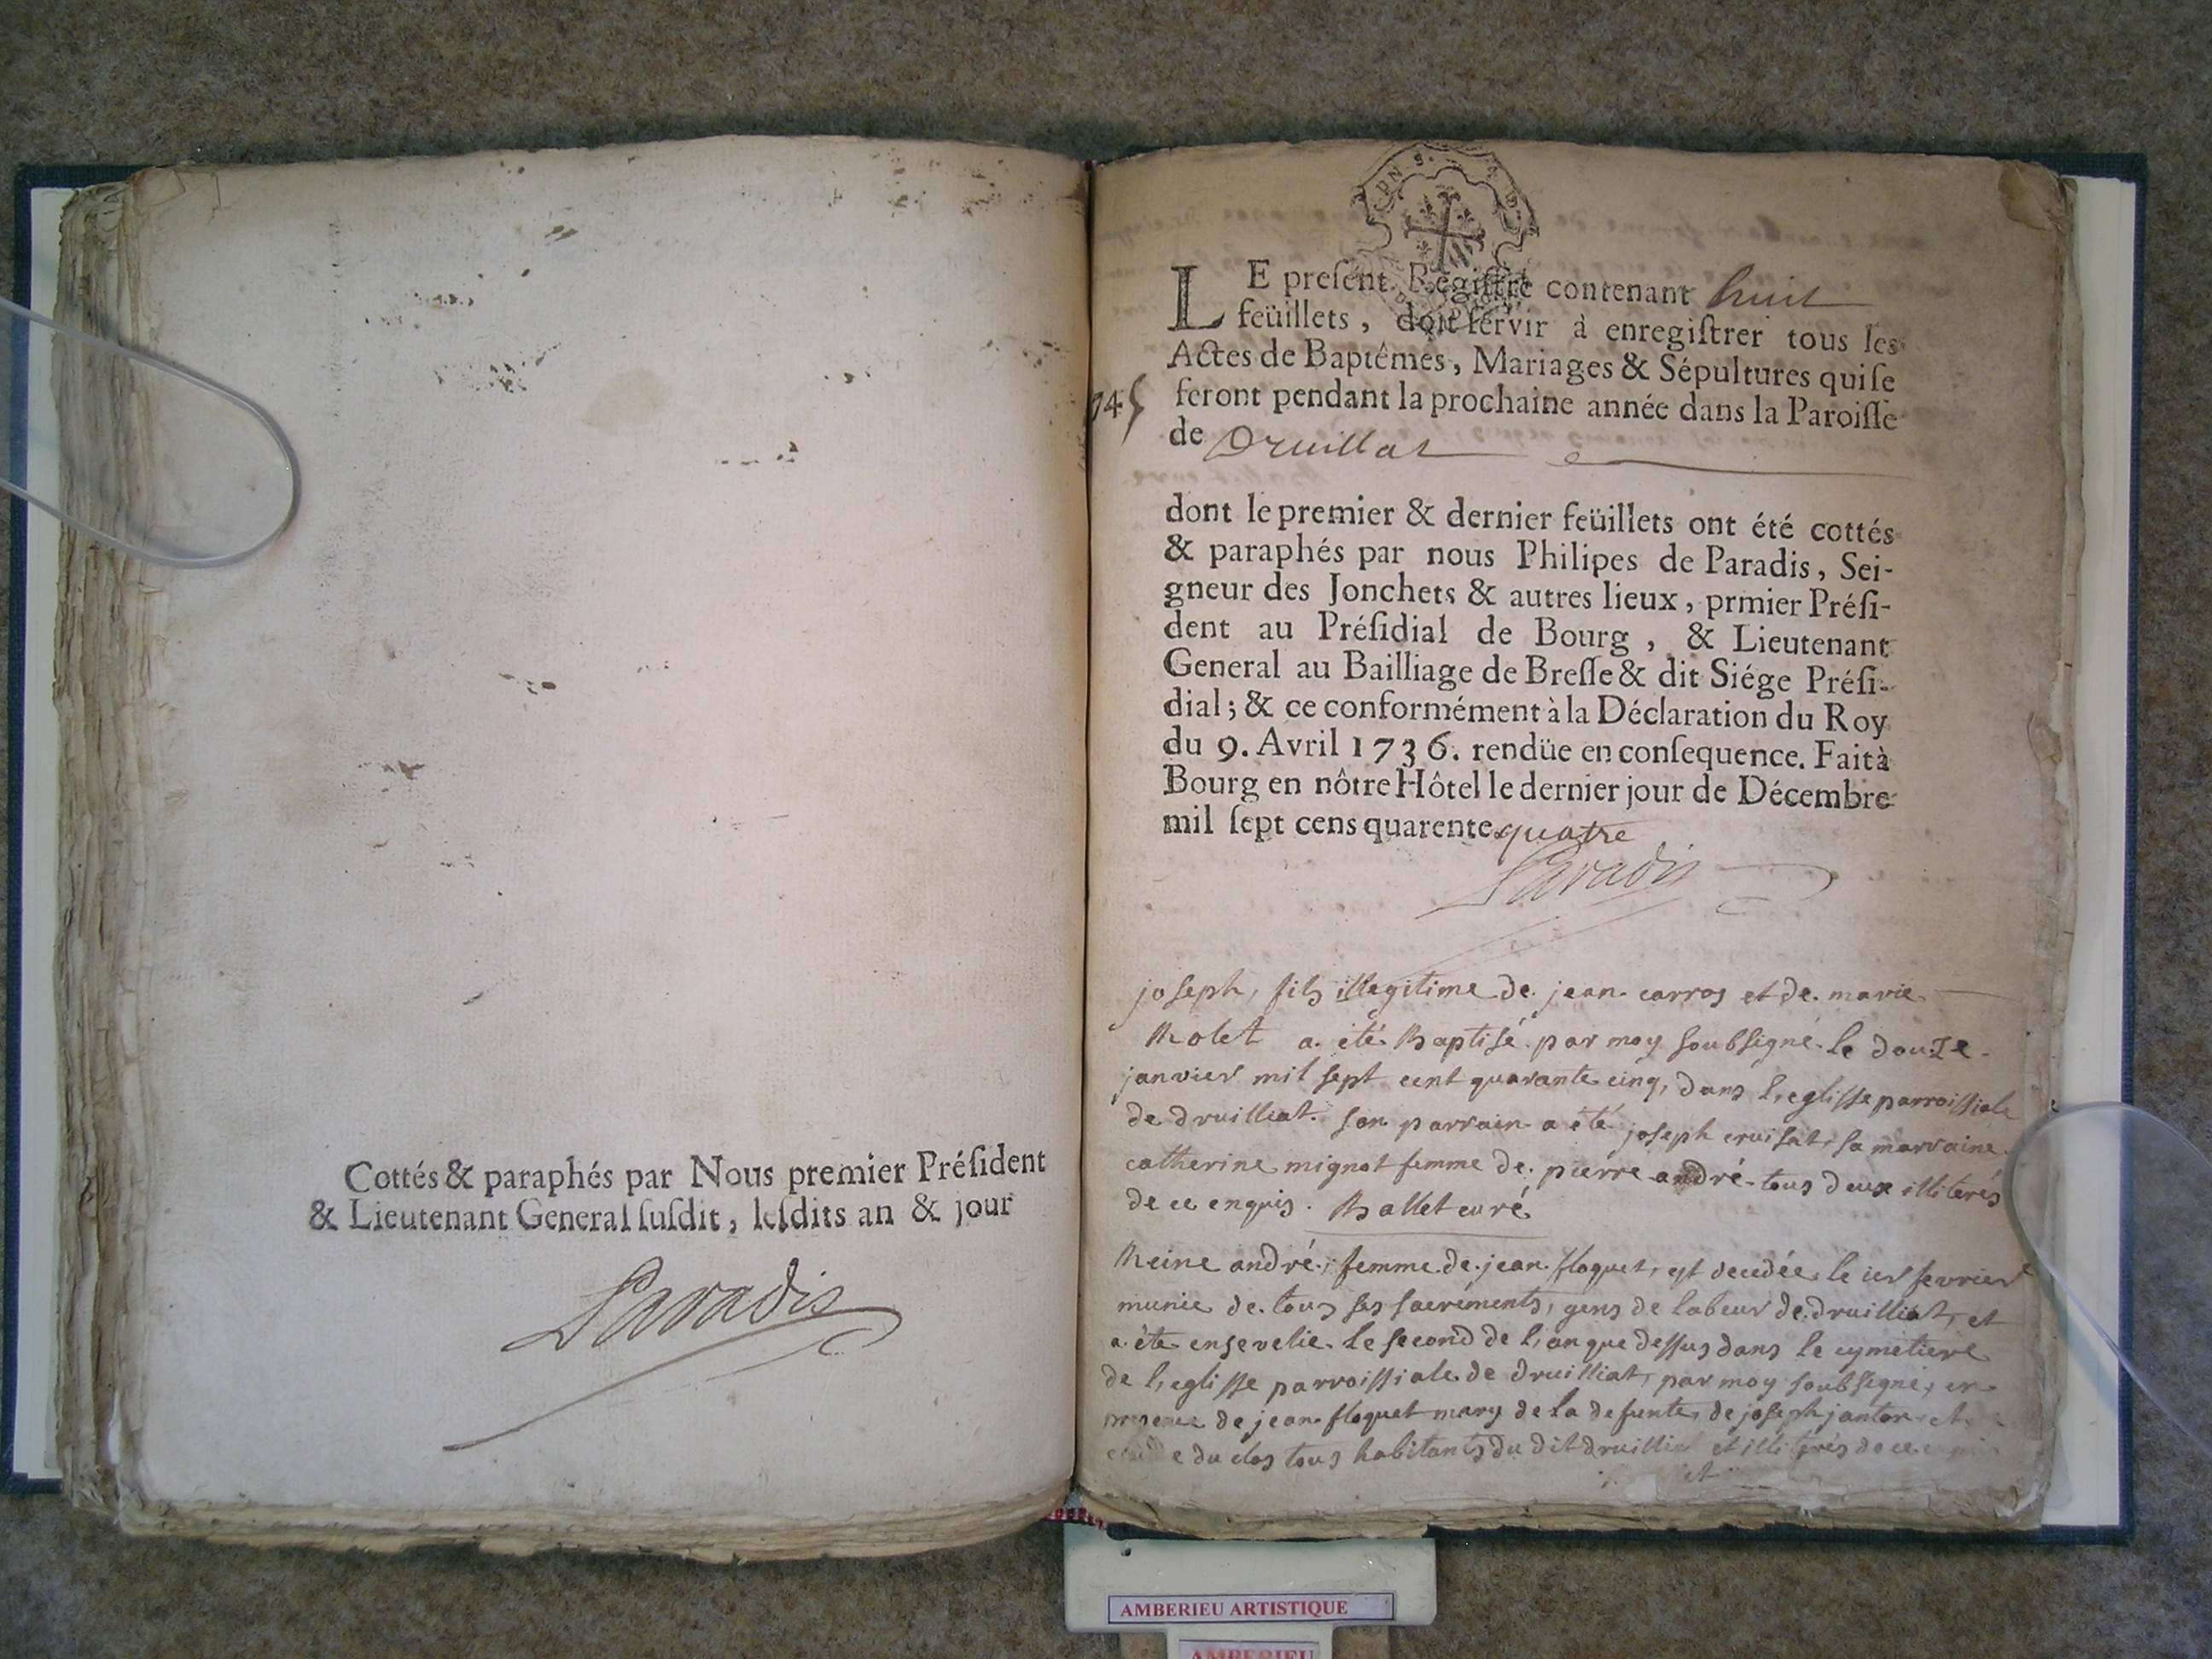 Cottés & paraphés par Nous premier Préſident
& Lieutenant General ſuſdit, leſdits an & jour
Paradis
LE preſent Regiſtre contenant huit
feüillets, doit ſervir à enregiſtrer tous les
Actes de Baptêmes, Mariages & Sépultures qui ſe
feront pendant la prochaine année dans la Paroiſſe
de Druillat
745
dont le premier & dernier feüillets ont été cottés
& paraphés par nous Philipes de Paradis, Sei-
gneur des Jonchets & autres lieux, prmier Préſi-
dent au Préſidial de Bourg, & Lieutenant
General au Bailliage de Breſſe & dit Siége Préſi-
dial; & ce conformément à la Déclaration du Roy
du 9. Avril 1736. rendüe en conſequence. Fait à
Bourg en nôtre Hôtel le dernier jour de Décembre
mil ſept cens quarente quatre
Paradis
joseph, fils illegitime de jean carros et de marie
Rolet a été Baptisé par moy soubsigné le douze
janvier mil sept cent quarante cinq, dans l'eglisse parroissiale
de druilliat. son parrain a été joseph cruisat, sa marraine
catherine mignot femme de pierre andré tous deux illiterés
de ce enquis. Ballet curé
Reine andré, femme de jean floquet, est decedée le ier fevrier
munie de tous ses sacréments, gens de labeur de druilliat, et
a éte ensevelie le second de l'an que dessus dans le cymetiere
de l'eglisse parroissiale de druilliat, par moy soubsigné, en
presence de jean floquet mary de la defunte, de joseph janton et
du clos tous habitants du dit druilliat et illiterés de ce